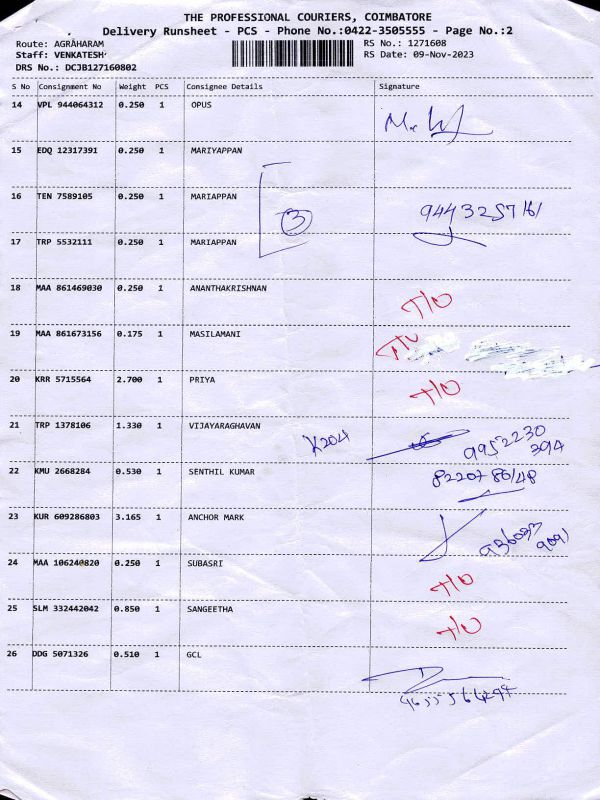 THE PROFESSIONAL COURIERS, COIMBATORE
Delivery Runsheet - PCS - Phone No.:0422-3505555 - Page No.:2
Route: AGRAHARAM
RS No.: 1271608
Staff: VENKATESH
RS Date: 09-Nov-2023
DRS No.: DCJB127160802
S No Consignment No Weight PCS Consignee Details Signature
14 VPL 944064312 0.250 1 OPUS
15 EDQ 12317391 0.250 1 MARIYAPPAN
16 TEN 7589105 0.250 1 MARIAPPAN
3 9443257161
17 TRP 5532111 0.250 1 MARIAPPAN
18 MAA 861469030 0.250 1 ANANTHAKRISHNAN
T/O
19 MAA 861673156 0.175 1 MASILAMANI
20 KRR 5715564 2.700 1 PRIYA T/O
21 TRP 1378106 1.330 1 VIJAYARAGHAVAN
K204 9952230
394
22 KMU 2668284 0.530 1 SENTHIL KUMAR 8220786148
23 KUR 609286803 3.165 1 ANCHOR MARK
24 MAA 106240820 0.250 1 SUBASRI
T/O
25 SLM 332442042 0.850 1 SANGEETHA
T/O
26 DDG 5071326 0.510 1 GCL